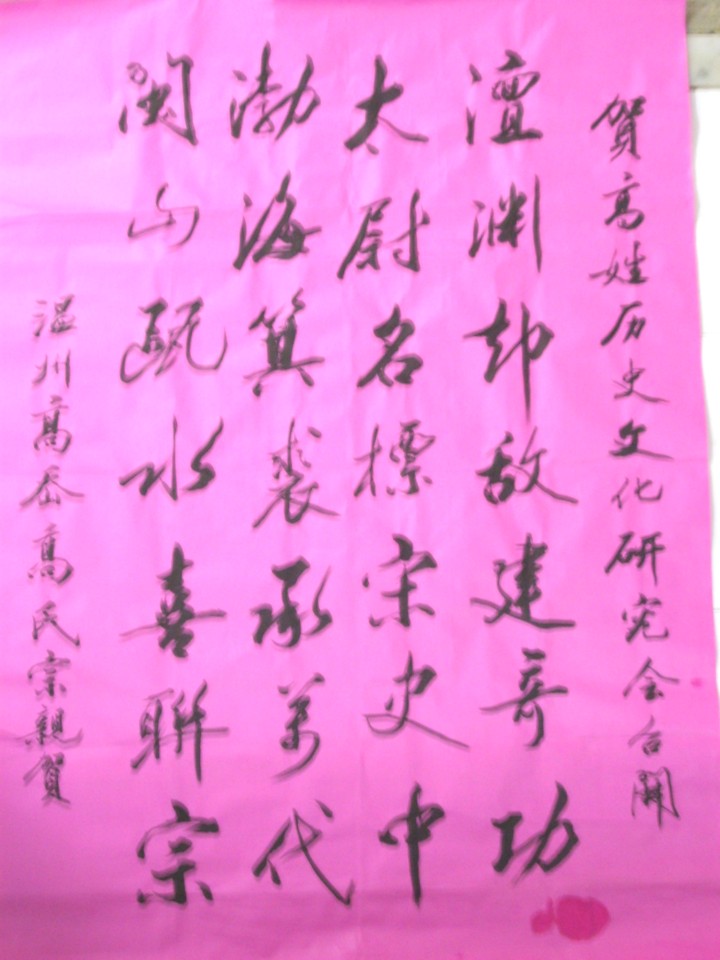 賀高姓历史文化研究会召開
澶渊却敌建奇功
太尉名標宋史中
渤海箕裘承萬代
閩山甌水喜聯宗
温州高岙高氏宗親賀